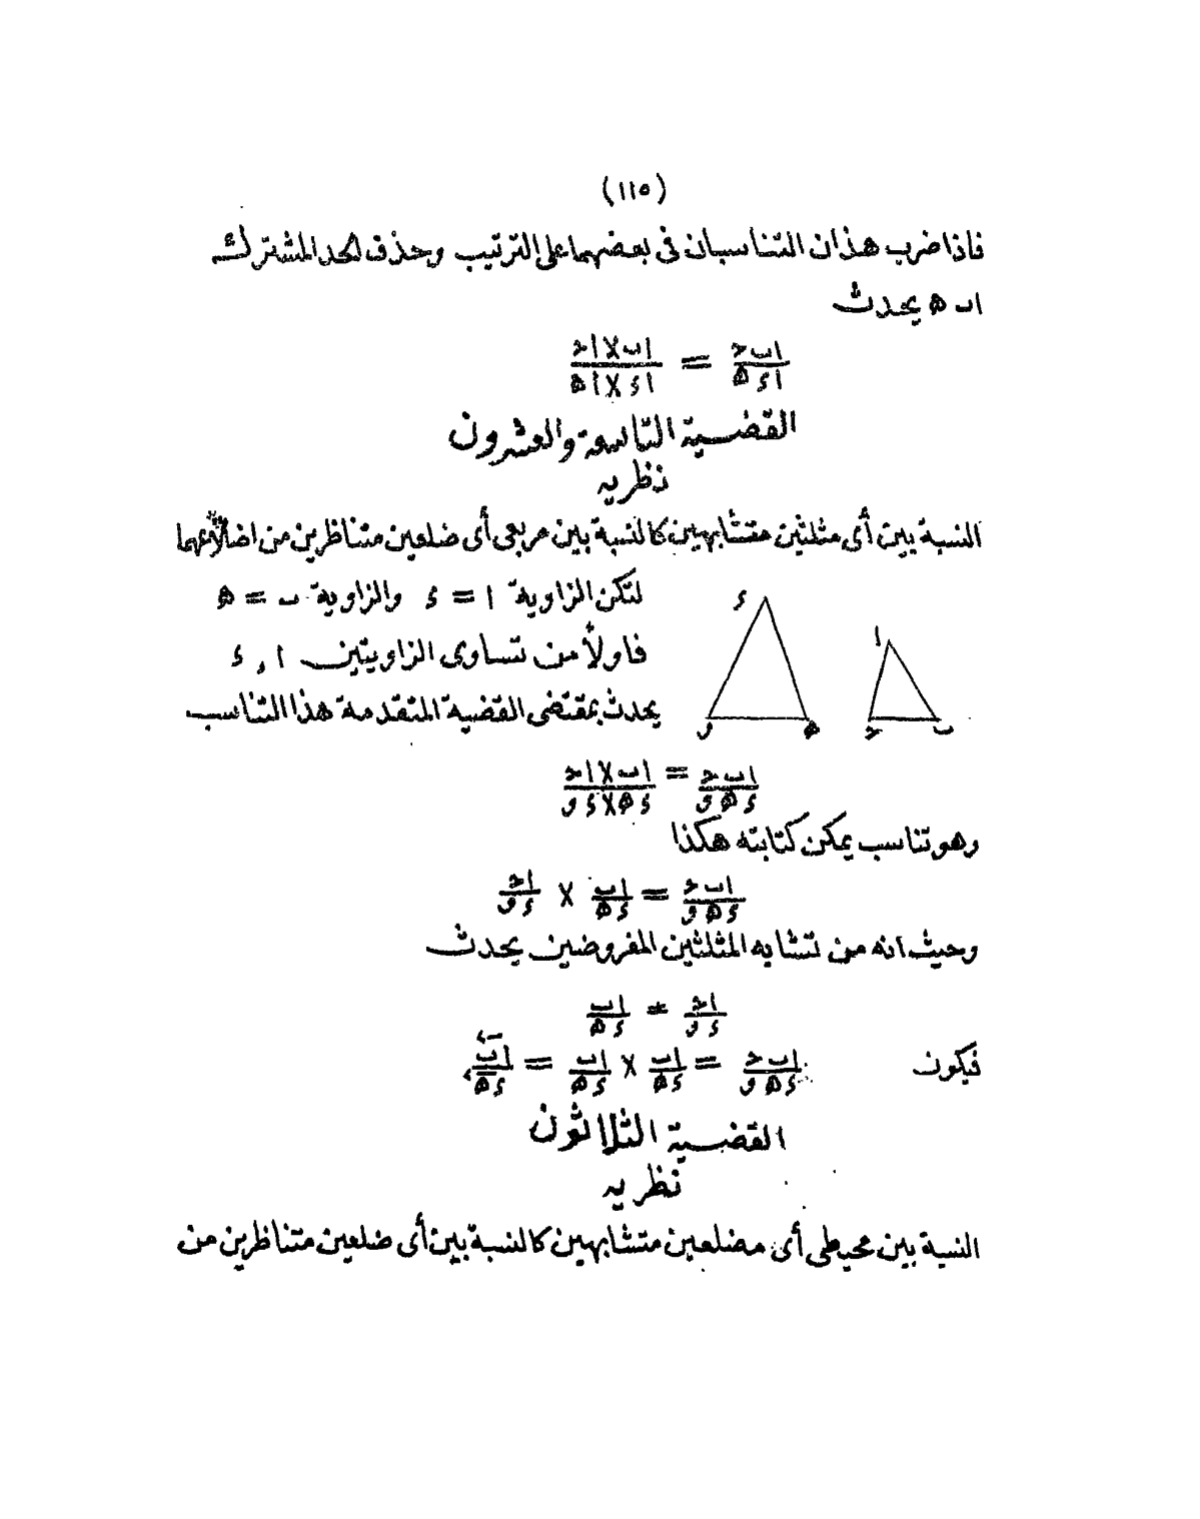 (١١٥)
فاذا ضرب هذان التناسبان فى بعضهما على الترتيب وحذف الحد المشترك
اب ه يحدث
ابح / اءه = اب×اح / اء×اه
القضية التاسعة والعشرون
نظريه
النسبة بين أى مثلثين متشابهين كالنسبة بين مربعى أى ضلعين متناظرين من اضلاعهما
لتكن الزاوية ا = ء والزاوية ب = ه
فاولاً من تساوى الزاويتين ا , ء
يحدث بمقتضى القضية المتقدمة هذا التناسب
ء
ا
و
ه
ح
ب
ابح / ءهو = اب×اح / ءه×ءو
وهو تناسب يمكن كتابته هكذا
ابح / ءهو = اب / ءه × اح / ءو
وحيث انه من تشابه المثلثين المفروضين يحدث
اح / ءو = اب / ءه
فيكون ابح / ءهو = اب / ءه × اب / ءه = اب٢ / ءه٢
القضية الثلاثون
نظريه
النسبة بين محيطى أى مضلعين متشابهين كالنسبة بين أى ضلعين متناظرين من